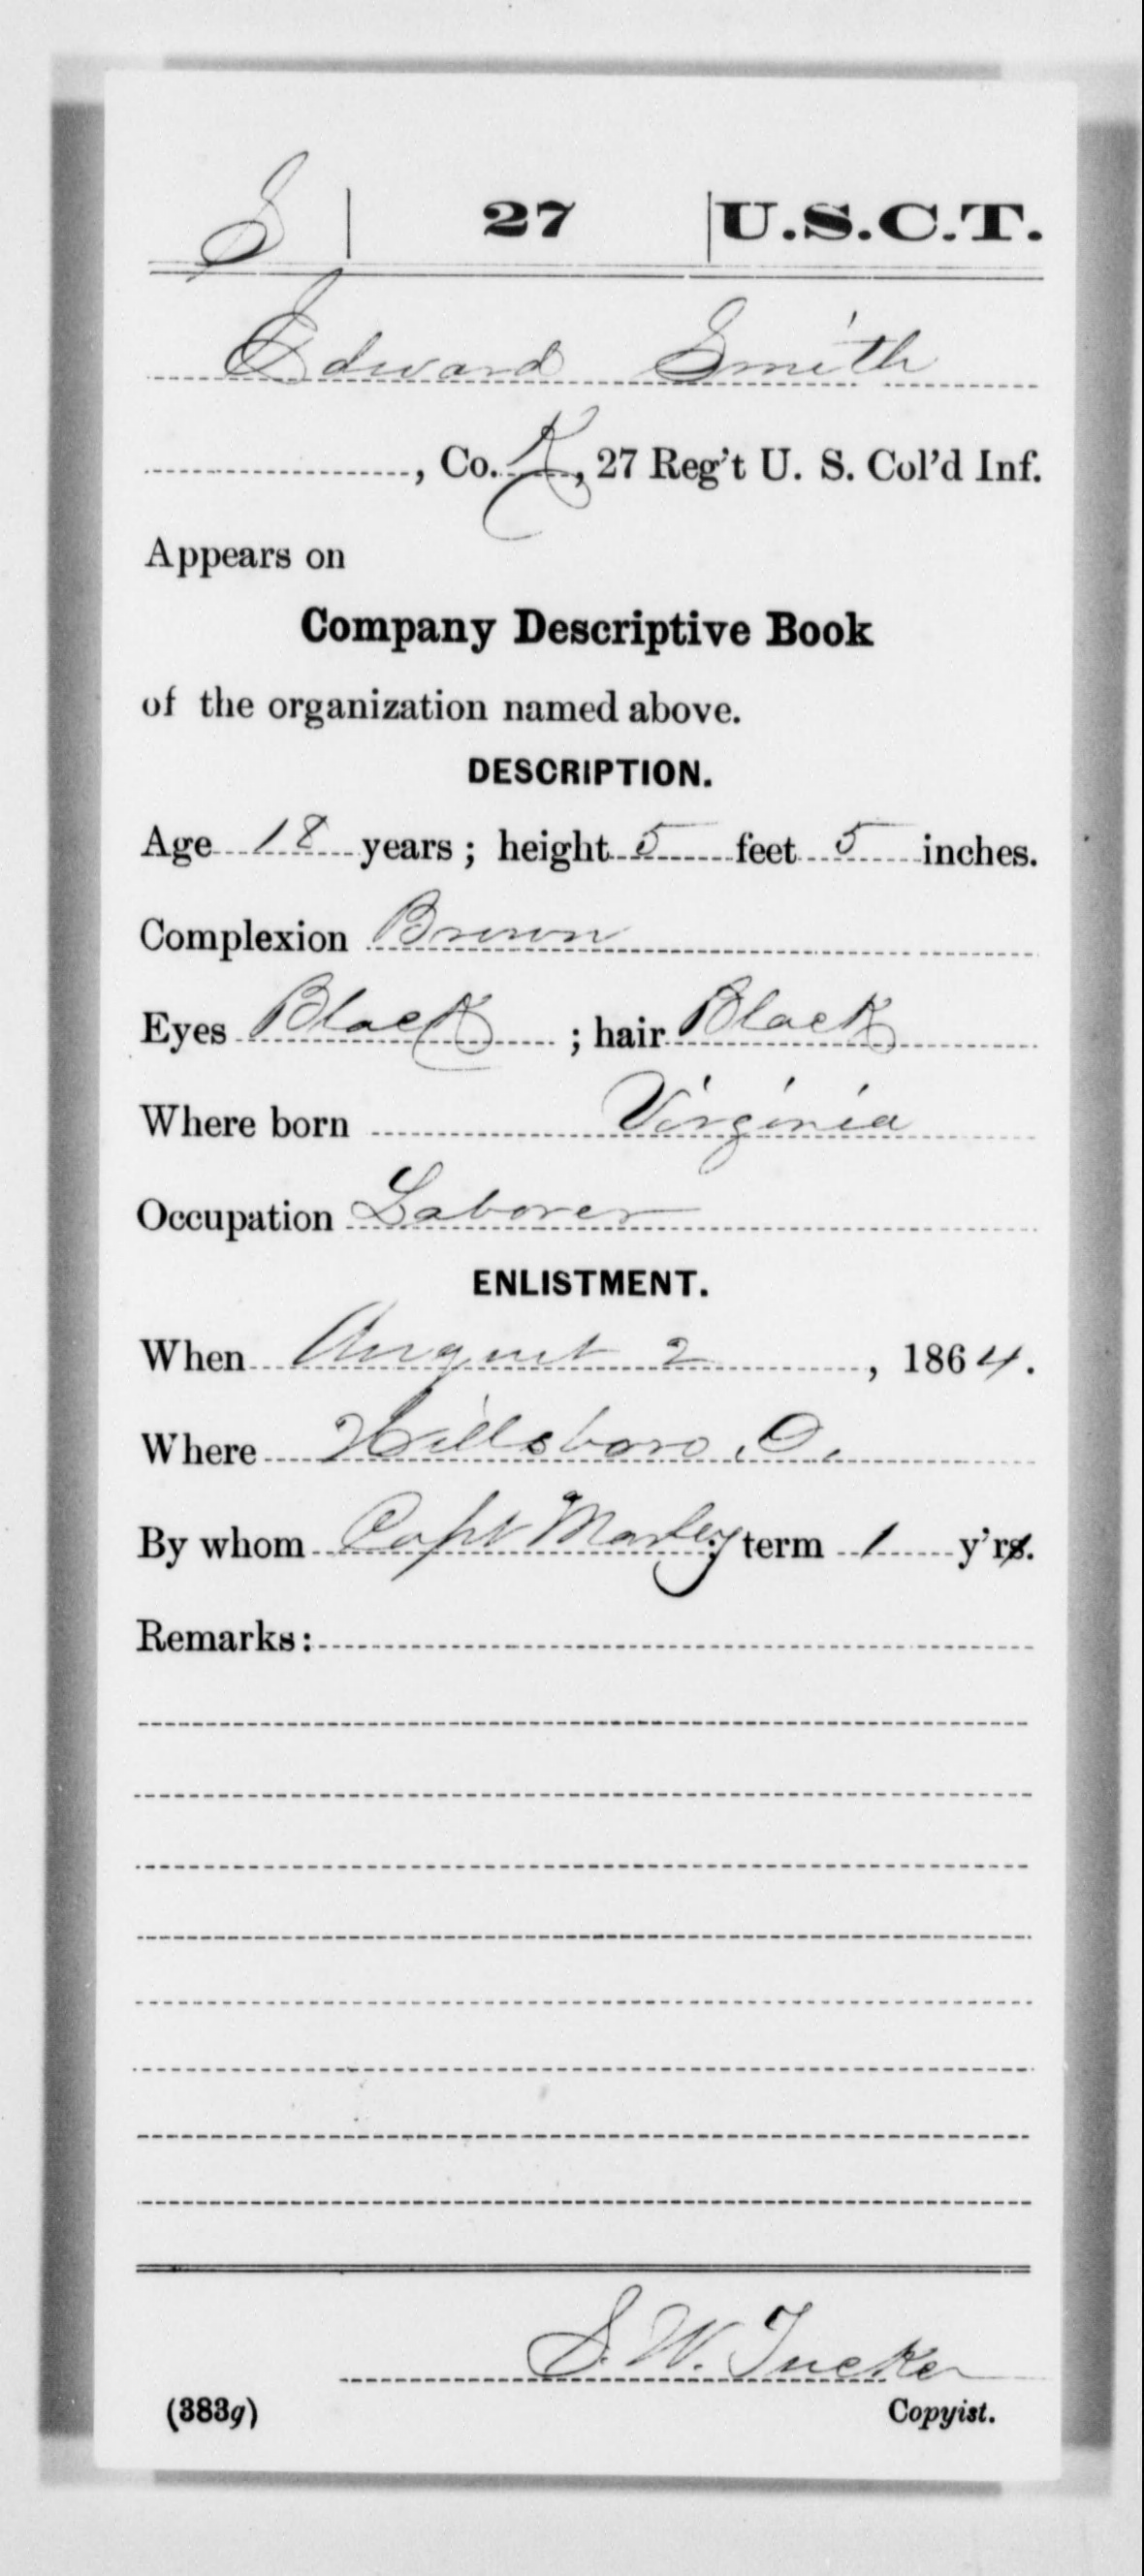 S | 27 | U.S.C.T.
Edward Smith
, Co. K, 27 Reg't U. S. Col'd Inf.
Appears on
Company Descriptive Book
of the organization named above.
DESCRIPTION.
Age 18 years; height 5 feet 5 inches.
Complexion Brown
Eyes Black; hair Black
Where born Virginia
Occupation Laborer
ENLISTMENT.
When August 2, 1864.
Where Hillsboro, O.
By whom Capt Marley; term 1 y'rs.
Remarks:
S. W. Tucker
(383g) Copyist.